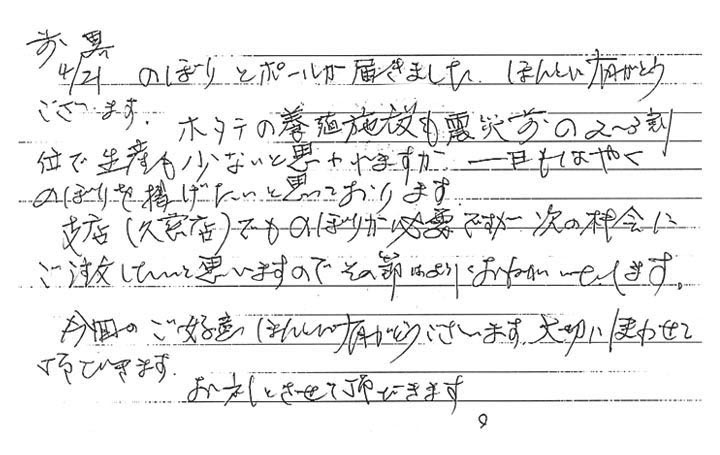 前略
4/21 のぼりとポールが届きました。ほんとに有がとう
ございます。
ホタテの養殖施設も震災前の2〜3割
位で生産も少ないと思われますが、一日もはやく
のぼりを揚げたいと思っております。
支店(久慈店)でものぼりが必要ですが 次の機会に
ご注文したいと思いますのでその節はよろしくおねがいいたします。
今回のご好意 ほんとに有がとうございます。大切に使わせて
頂きます。
お礼とさせて頂きます